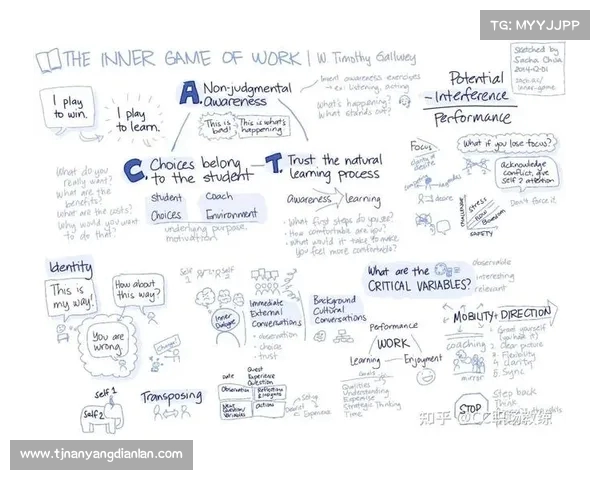 TG: MYYJJPP
THE INNER GAME OF WORK | W. Timothy Gallwey
Sketched by
Sacha Chua
2014-12-01
I play
to win.
I play
to learn.
A. Non-judgmental
awareness
This is
bad!
This is what's
happening
Invent awareness exercises
ex: listening, acting
What's happening?
What stands out?
Potential
- Interference
Performance
C. Choices belong
to the student
Student
Coach
Choices
Environment
underlying purpose,
motivation
What do you
really want?
What are the
benefits?
What are the costs?
Why would you want
to do that?
T. Trust the natural
learning process
awareness
learning
• What first steps do you see?
• How comfortable are you?
• What would it take to make
you feel more comfortable?
FOCUS
What if you lose focus?
desire
acknowledge
conflict, give
Self 2 attention
Don't force it
CHALLENGE
STRESS
FLOW
SAFETY
Identity
This is
my way!
How about
this way?
You are
wrong.
Change!
Self 1
Self 2
Inner
Dialogue
Immediate
External
Conversations
• observation
• choice
• trust
Background
Cultural
Conversations
What are the
CRITICAL VARIABLES?
observable
interesting
relevant
Performance
WORK
Learning
Enjoyment
Goals
Qualities
Understanding
Expertise
Strategic Thinking
Time
MOBILITY + DIRECTION
coaching
mirror
2. Clear picture
3. Flexibility
4. Clarity
5. Sync
Self 1
Self 2
Transposing
Date
Quest
Experience
Question
Observations
Reflections
& Insights
Next
Question/
Variables
Action
Setup
Debrief
Experience
STOP
Step back
Think
知乎 @CC职场教练
www.tjnanyangdianlan.com